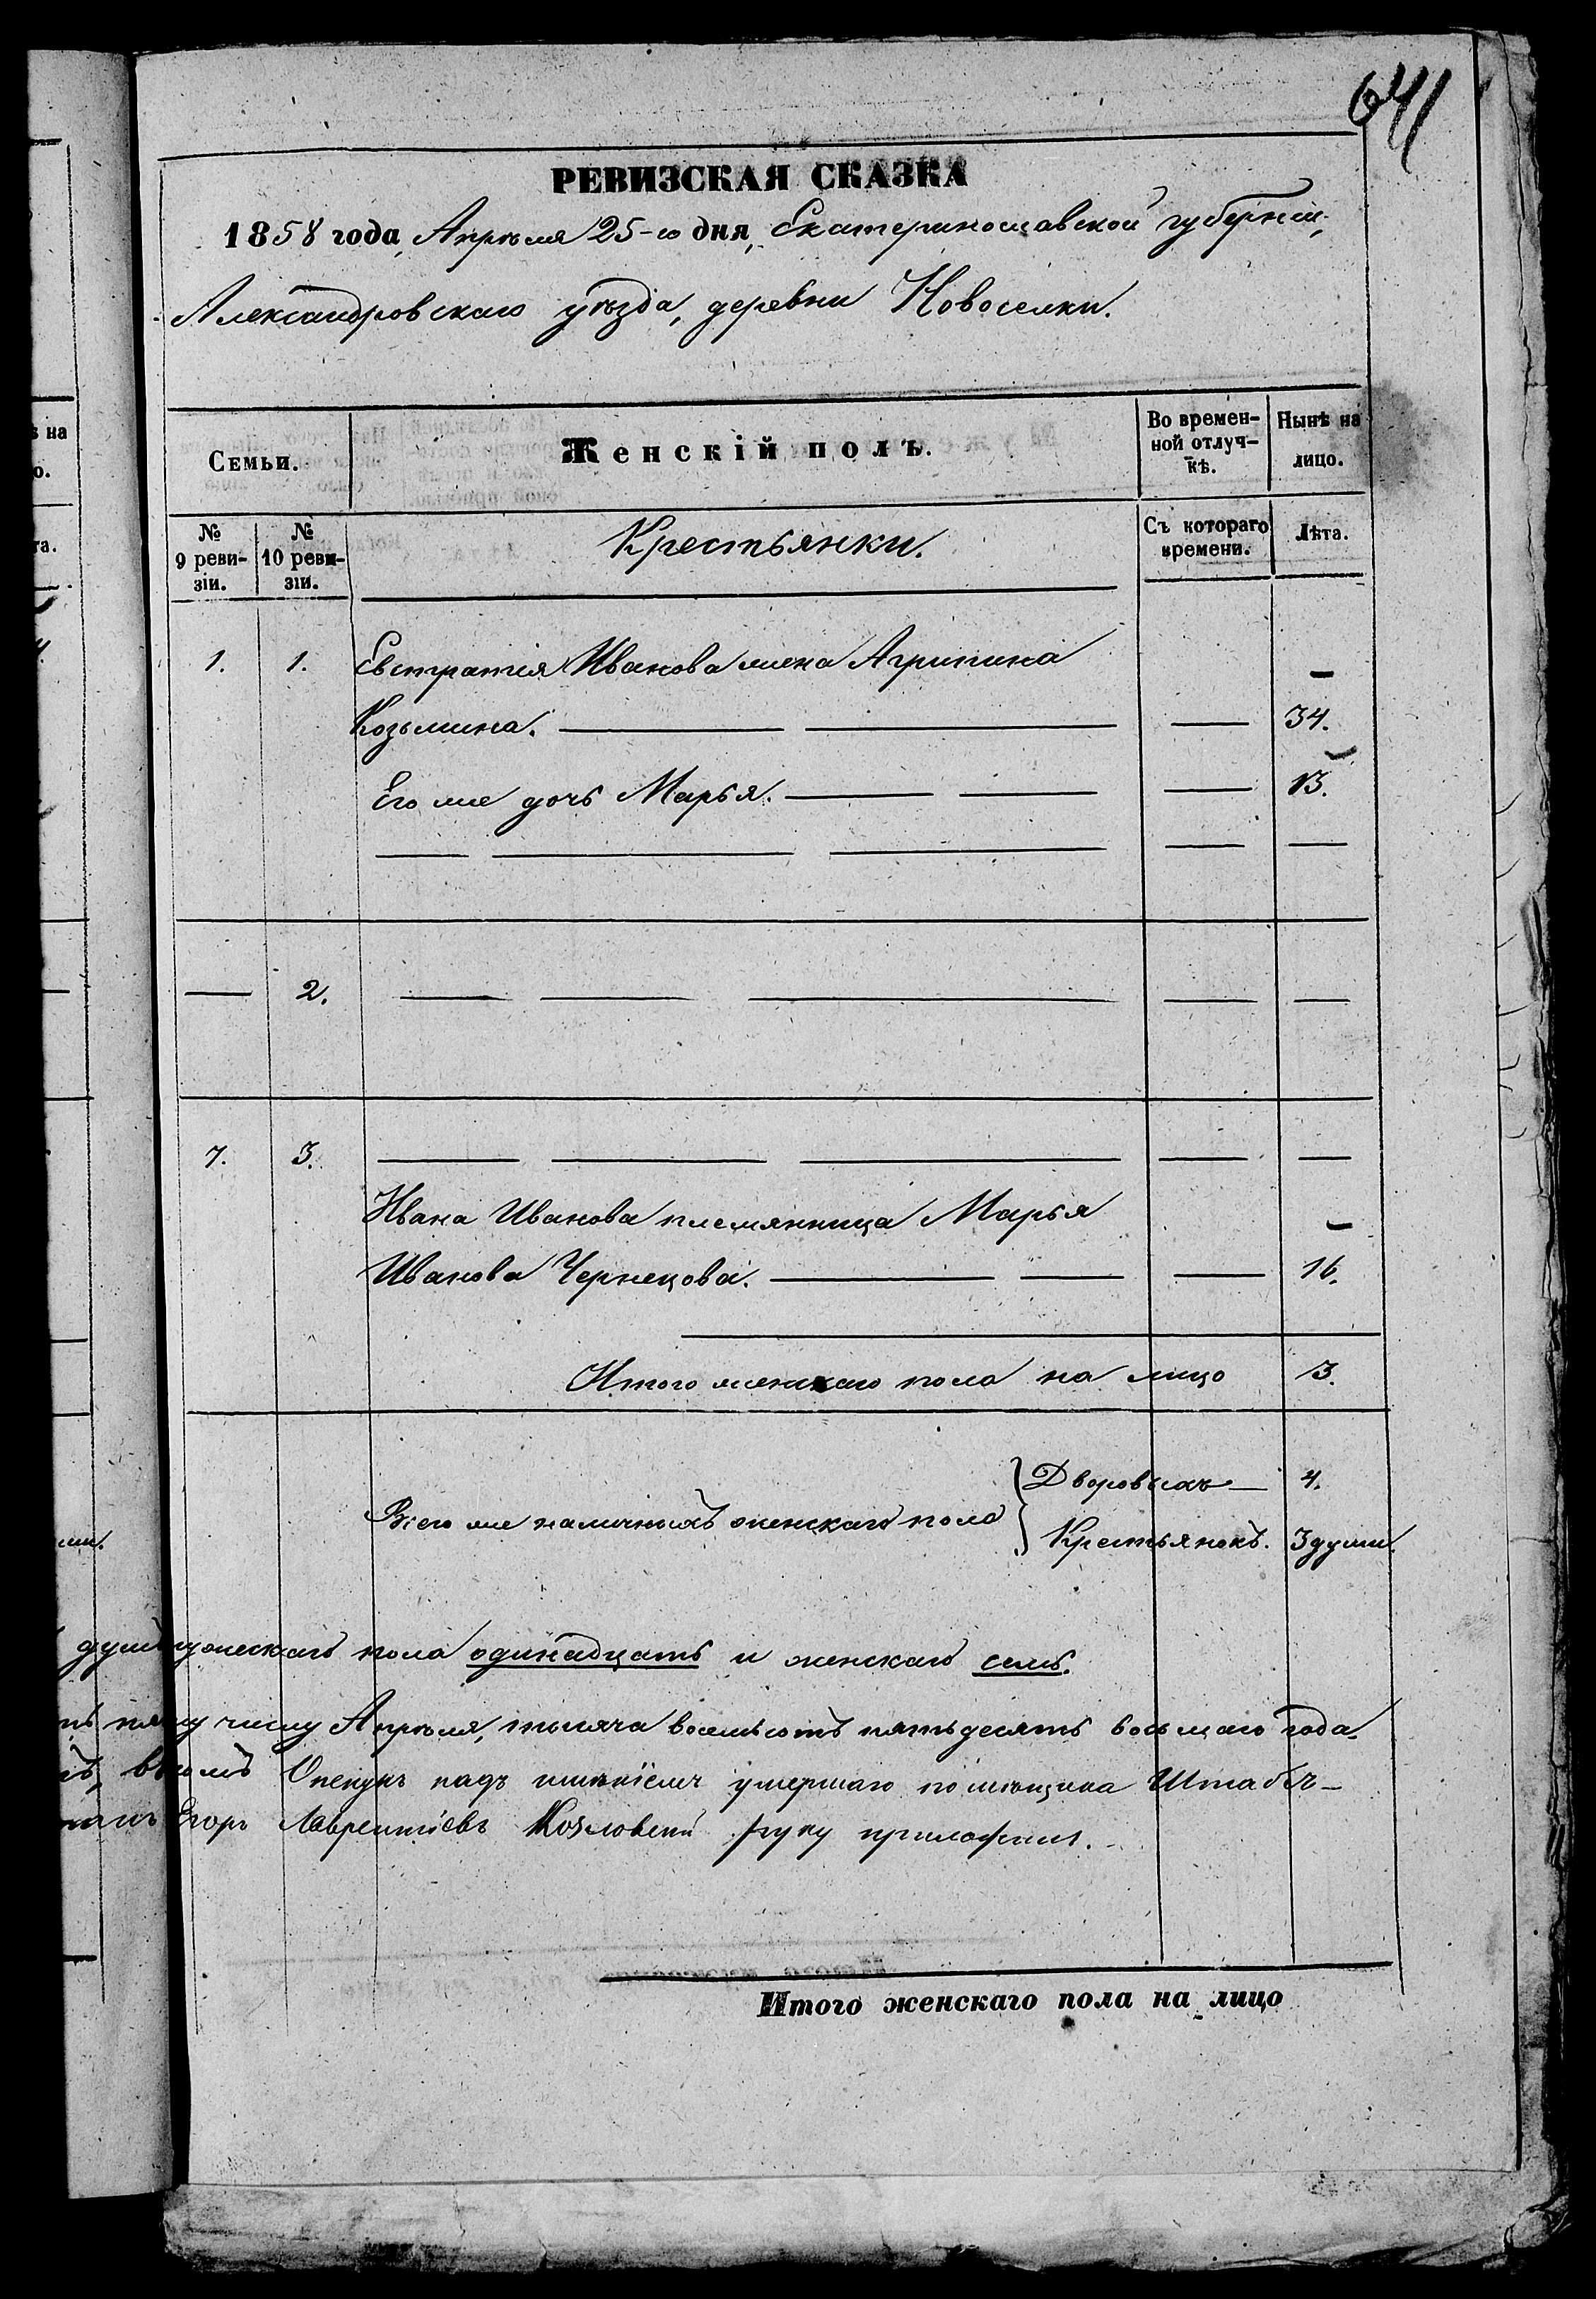 641
РЕВИЗСКАЯ СКАЗКА
1858 года, Апрѣля 25-го дня, Екатеринославской губерніи,
Александровскаго уѣзда, деревни Новоселки.
Семьи.
Женскій полъ.
Во времен-
ной отлуч-
кѣ.
Нынѣ на
лицо.
№
9 реви-
зіи.
№
10 реви-
зіи.
Крестьянки.
Съ котораго
времени.
Лѣта.
1. 1. Евстратія Иванова жена Агрипина
Козьмина. — — — 34.
Его же дочь Марья. — — — 13.
— 2. — — — — —
7. 3. — — — — —
Ивана Иванова племянница Марья
Иванова Чернецова. — — — 16.
Итого женскаго пола на лицо 3.
Всего же наличныхъ женскаго пола
Дворовыхъ — 4.
Крестьянокъ. 3 души.
душъ мужескаго пола одинадцать и женскаго семь.
числу Апрѣля, тысяча восемьсотъ пятьдесятъ восьмаго года.
Опекунъ надъ имѣніемъ умершаго помѣщика Штабсъ-
Егоръ Лаврентіевъ Козловскій руку приложилъ.
Итого женскаго пола на лицо